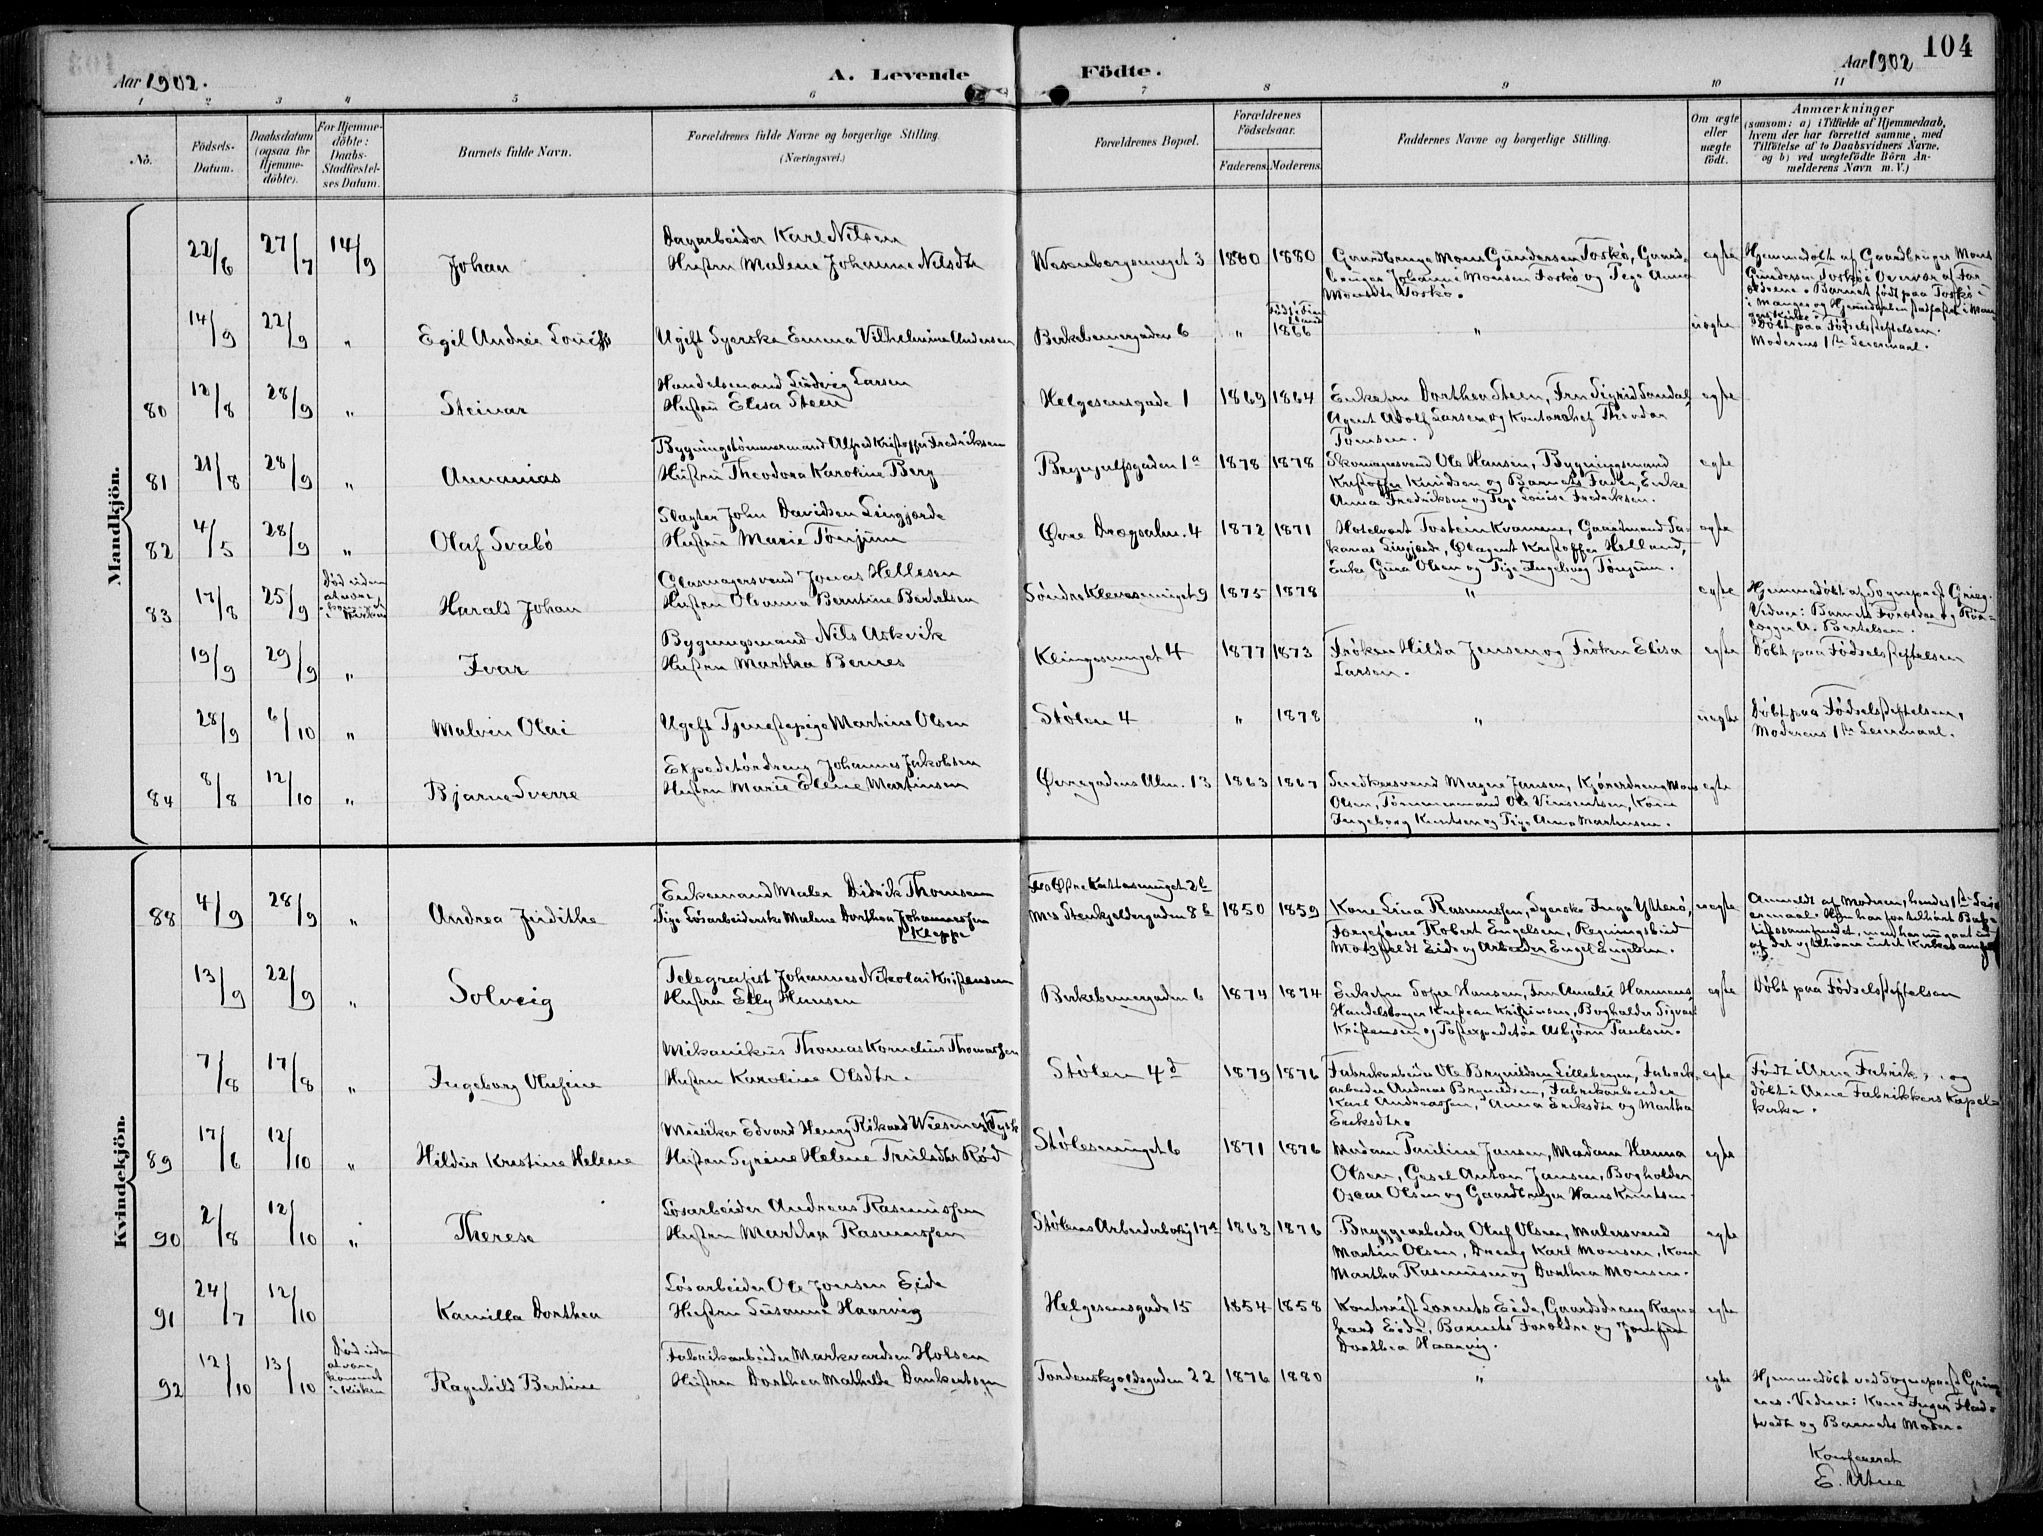 104
Aar 1902.
A. Levende Födte.
Aar 1902
1 2 3 4 5 6 7 8 9 10 11
No.
Födsels-Datum.
Daabsdatum (ogsaa for Hjemme-döbte).
For Hjemme-döbte: Daabs-Stadfæstel-ses Datum.
Barnets fulde Navn.
Forældrenes fulde Navne og borgerlige Stilling. (Næringsvei.)
Forældrenes Bopæl.
Forældrenes Födselsaar.
Faderens. Moderens.
Faddernes Navne og borgerlige Stilling.
Om ægte eller uægte födt.
Anmærkninger
(saasom: a) i Tilfælde af Hjemmedaab, hvem der har forrettet samme, med Tilföielse af to Daabsvidners Navne, og b) ved uægtefödte Börn An-melderens Navn m. V.)
Mandkjön.
22/6 27/7 14/9 Johan
Dagarbeider Karl Nilsen
Hustru Malene Johanne Nilsdtr
3 1880 1880
Gaardbruger Mons Gundersen Toskø, Gaard-
bruger Johannes Monsen Toskø og Pige Anna
Monsdtr Toskø.
egte
Hjemmedøbt af Gaardbruger Mons
Gundersen Toskø. Overvær af For
ældrene. Barnet født paa Toskø i
14/9 22/9 " Egil Andréa
Ugift Syerske Emma Vilhelmine Andersen
Birkebeinergaden 6 " 1866 "
uegte
Døbt paa Fødselsstiftelsen.
Moderens 1ste Leiermaal.
80 12/8 28/9 " Steinar
Handelsmand Ludvig Larsen
Hustru Elisa Steen
Helgesensgade 1 1869 1864
Enkefru Dorthea Steen, Fru Sigrid Sandal,
Agent Adolf Larsen og Kontorchef Theodor
Tønsen.
egte
81 21/8 28/9 " Annanias
Bygningstømmermand Alfred Kristoffer Fredriksen
Hustru Theodora Karoline Berg
Brynjulfsgaden 1a 1878 1878
Skomagersvend Ole Hansen, Bygningsmand
Kristoffer Knudsen og Barnets Fader, Enke
Anna Fredriksen og Pige Louise Fredriksen.
egte
82 4/5 28/9 " Olaf Svabö
Slagter John Davidsen Lingjerde
Hustru Marie Tönjum
Øvre Dragsalm. 4 1872 1871
Hotelvert Tostein Kvamme, Gaardmand
Lingjerde, Ølagent Kristoffer Helland,
Enke Gina Olsen og Pige Ingeborg Tönjum.
egte
83 17/8 25/9 Død uden at være kommet i Kirken
Harald Johan
Glasmagersvend Jonas Hellesen
Hustru Olianna Berntine Bertelsen
Søndre Klevesmuget 9 1875 1878 "
egte
Hjemmedøbt af Sogneprest Grieg.
Vidner: Barnets Forældre og Rør-
lægger A. Bertelsen.
19/9 29/9 " Ivar
Bygningsmand Nils Askvik
Hustru Martha Bernes
Klingesmuget 4 1877 1873
Frøken Hilda Jensen og Frøken Elisa
Larsen.
egte
Døbt paa Fødselsstiftelsen
28/9 6/10 " Malvin Olai
Ugift Tjenestepige Martine Olsen
Stølen 4 " 1878 "
uegte
Døbt paa Fødselsstiftelsen,
Moderens 1ste Leiermaal.
84 8/8 12/10 " Bjarne Sverre
Expeditørdreng Johannes Jakobsen
Hustru Marie Elene Martinsen
Øvregadens Alm. 13 1863 1867
Snedkersvend Magne Jansen, Kjøredreng Mons
Olsen, Tømmermand Ole Vinsentsen, Kone
Ingeborg Knutsen og Pige Anna Martinsen.
egte
Kvindekjön.
88 4/9 28/9 " Andrea Judithe
Enkemand Maler Didrik Thomsen
Pige Løsarbeiderske Malene Dorthea Johannessen
Kleppe
Fa Øvre Kattesmuget 2b
Ms Stenkjeldergaden 8b 1850 1859
Kone Lina Rasmussen, Syerske Inga Ytterö,
Robert Engelsen, Regningsbud
Motzfeldt Eide og Arbeider Engel Engelsen.
uegte
Anmeldt af Moderen, hendes 1ste Lei-
ermaal. Hun har før tilhørt Bap-
tistsamfundet, men har nu gaat ud
af det og tilhører intet Kirkesamfund
13/9 22/9 " Solveig
Telegrafist Johannes Nikolai Kristensen
Hustru Elly Hansen
Birkebeinergaden 6 1874 1874
Enkefru Sofie Hansen, Fru Amalie Harmens,
Handelsborger Kristian Kristensen, Bogholder Sigvart
Kristensen og Postexpeditør Asbjørn Paulsen.
egte
Døbt paa Fødselsstiftelsen
7/8 17/8 " Ingeborg Olufine
Mikanikus Thomas Kornelius Thomassen
Hustru Karoline Olsdtr.
Stølen 4d 1879 1876
Fabrikarbeider Ole Brynildsen Lillebergen, Fabrik-
arbeider Andreas Brynildsen, Fabrikarbeider
Karl Andreassen, Anna Eriksdtr og Martha
Eriksdtr.
egte
Født i Arne Fabrik, og
døbt i Arne Fabrikkers Kapel-
kirke.
89 17/6 12/10 " Hildur Kristine Helene
Musiker Edvard Henry Rikard Wiesener (Tysk
Hustru Syrene Helene Trulsdtr Rød
Stølesmuget 6 1871 1876
Madam Pauline Jansen, Madam Hanna
Olsen, Gesel Anton Jansen, Bogholder
Oscar Olsen og Gaardbruger Hans Knutsen.
egte
90 2/8 12/10 " Therese
Løsarbeider Andreas Rasmussen
Hustru Martha Rasmussen
Stølens Arbeiderbolig 17a 1863 1876
Bryggearbeider Oluf Olsen, Malersvend
Martin Olsen, Dreng Karl Monsen, Kone
Martha Rasmussen og Dorthea Monsen.
egte
91 24/7 12/10 Kamilla Dorthea
Løsarbeider Ole Jonsen Eide
Hustru Susanne Haarvig
Helgesensgade 15 1854 1858
Kontorist Lorents Eide, Gaardsdreng Ragn-
hard Eide, Barnets Forældre og Jomfru
Dorthea Haarvig.
egte
92 12/10 13/10 Død uden at være kommet i Kirken
Ragnhild Bertine
Fabrikarbeider Markvardsen Holsen
Hustru Dorthea Mathilde Dankertsen
Tordenskjoldsgaden 22 1876 1880 "
egte
Hjemmedøbt ved Sogneprest Grim-
nes. Vidner: Kone Inger Flad-
tvedt og Barnets Moder.
Konfereret
E. Utne